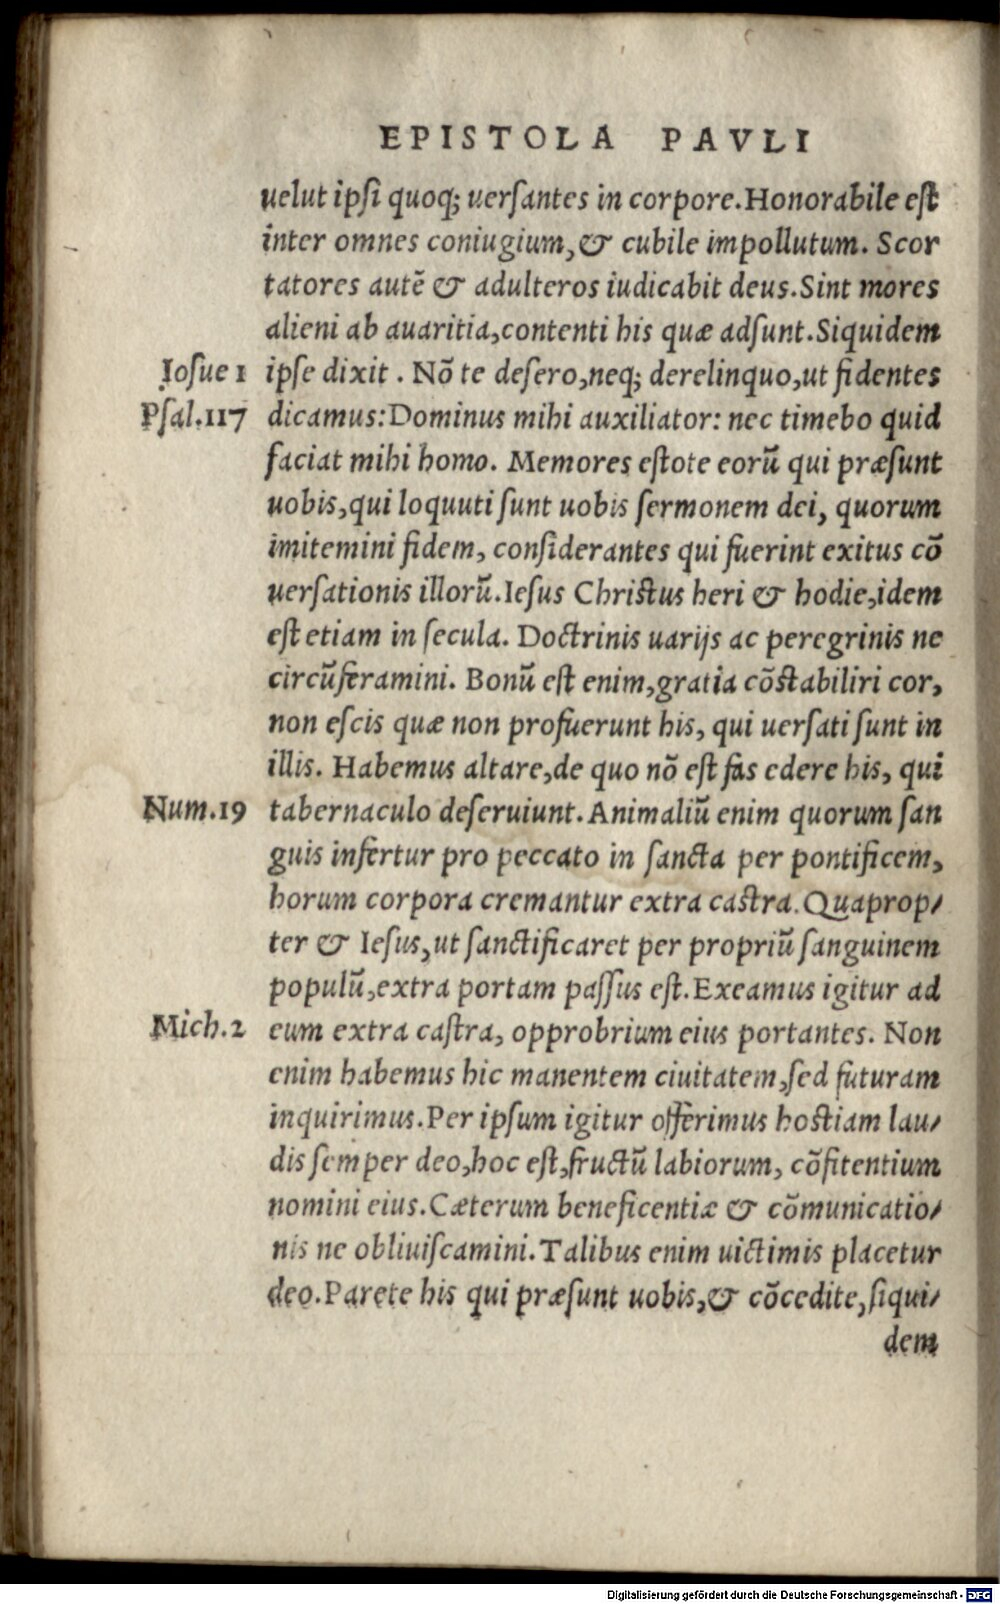 EPISTOLA PAVLI
uelut ipſi quoq; uerſantes in corpore. Honorabile eſt
inter omnes coniugium, & cubile impollutum. Scor
tatores autē & adulteros iudicabit deus. Sint mores
alieni ab auaritia, contenti his quæ adſunt. Siquidem
Ioſue 1 ipſe dixit. Nō te deſero, neq; derelinquo, ut fidentes
Pſal.117 dicamus: Dominus mihi auxiliator: nec timebo quid
faciat mihi homo. Memores eſtote eorū qui præſunt
uobis, qui loquuti ſunt uobis ſermonem dei, quorum
imitemini fidem, conſiderantes qui fuerint exitus cō
uerſationis illorū. Ieſus Chriſtus heri & hodie, idem
eſt etiam in ſecula. Doctrinis uarijs ac peregrinis ne
circūferamini. Bonū eſt enim, gratia cōſtabiliri cor,
non eſcis quæ non profuerunt his, qui uerſati ſunt in
illis. Habemus altare, de quo nō eſt fas edere his, qui
Num.19 tabernaculo deſeruiunt. Animaliū enim quorum ſan
guis infertur pro peccato in ſancta per pontificem,
horum corpora cremantur extra caſtra. Quaprop/
ter & Ieſus, ut ſanctificaret per propriū ſanguinem
populū, extra portam paſſus eſt. Exeamus igitur ad
Mich.2 eum extra caſtra, opprobrium eius portantes. Non
enim habemus hic manentem ciuitatem, ſed futuram
inquirimus. Per ipſum igitur offerimus hoſtiam lau/
dis ſemper deo, hoc eſt, fructū labiorum, cōfitentium
nomini eius. Cæterum beneficentiæ & cōmunicatio/
nis ne obliuiſcamini. Talibus enim uictimis placetur
deo. Parete his qui præſunt uobis, & cōcedite, ſiqui/
dem
Digitalisierung gefördert durch die Deutsche Forschungsgemeinschaft - DFG